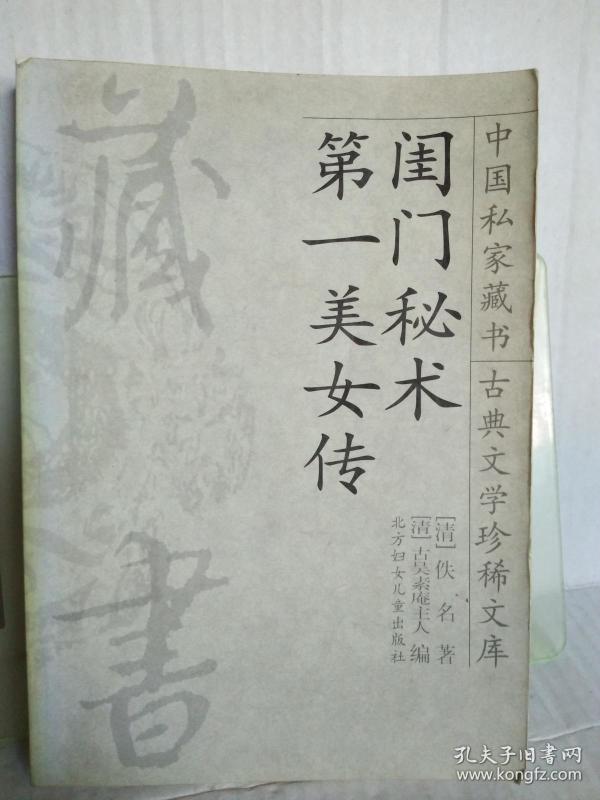 中国私家藏书
古典文学珍稀文库
闺门秘术
第一美女传
[清]佚名著
[清]古吴素庵主人编
北方妇女儿童出版社
藏書
孔夫子旧书网
www.kongfz.com